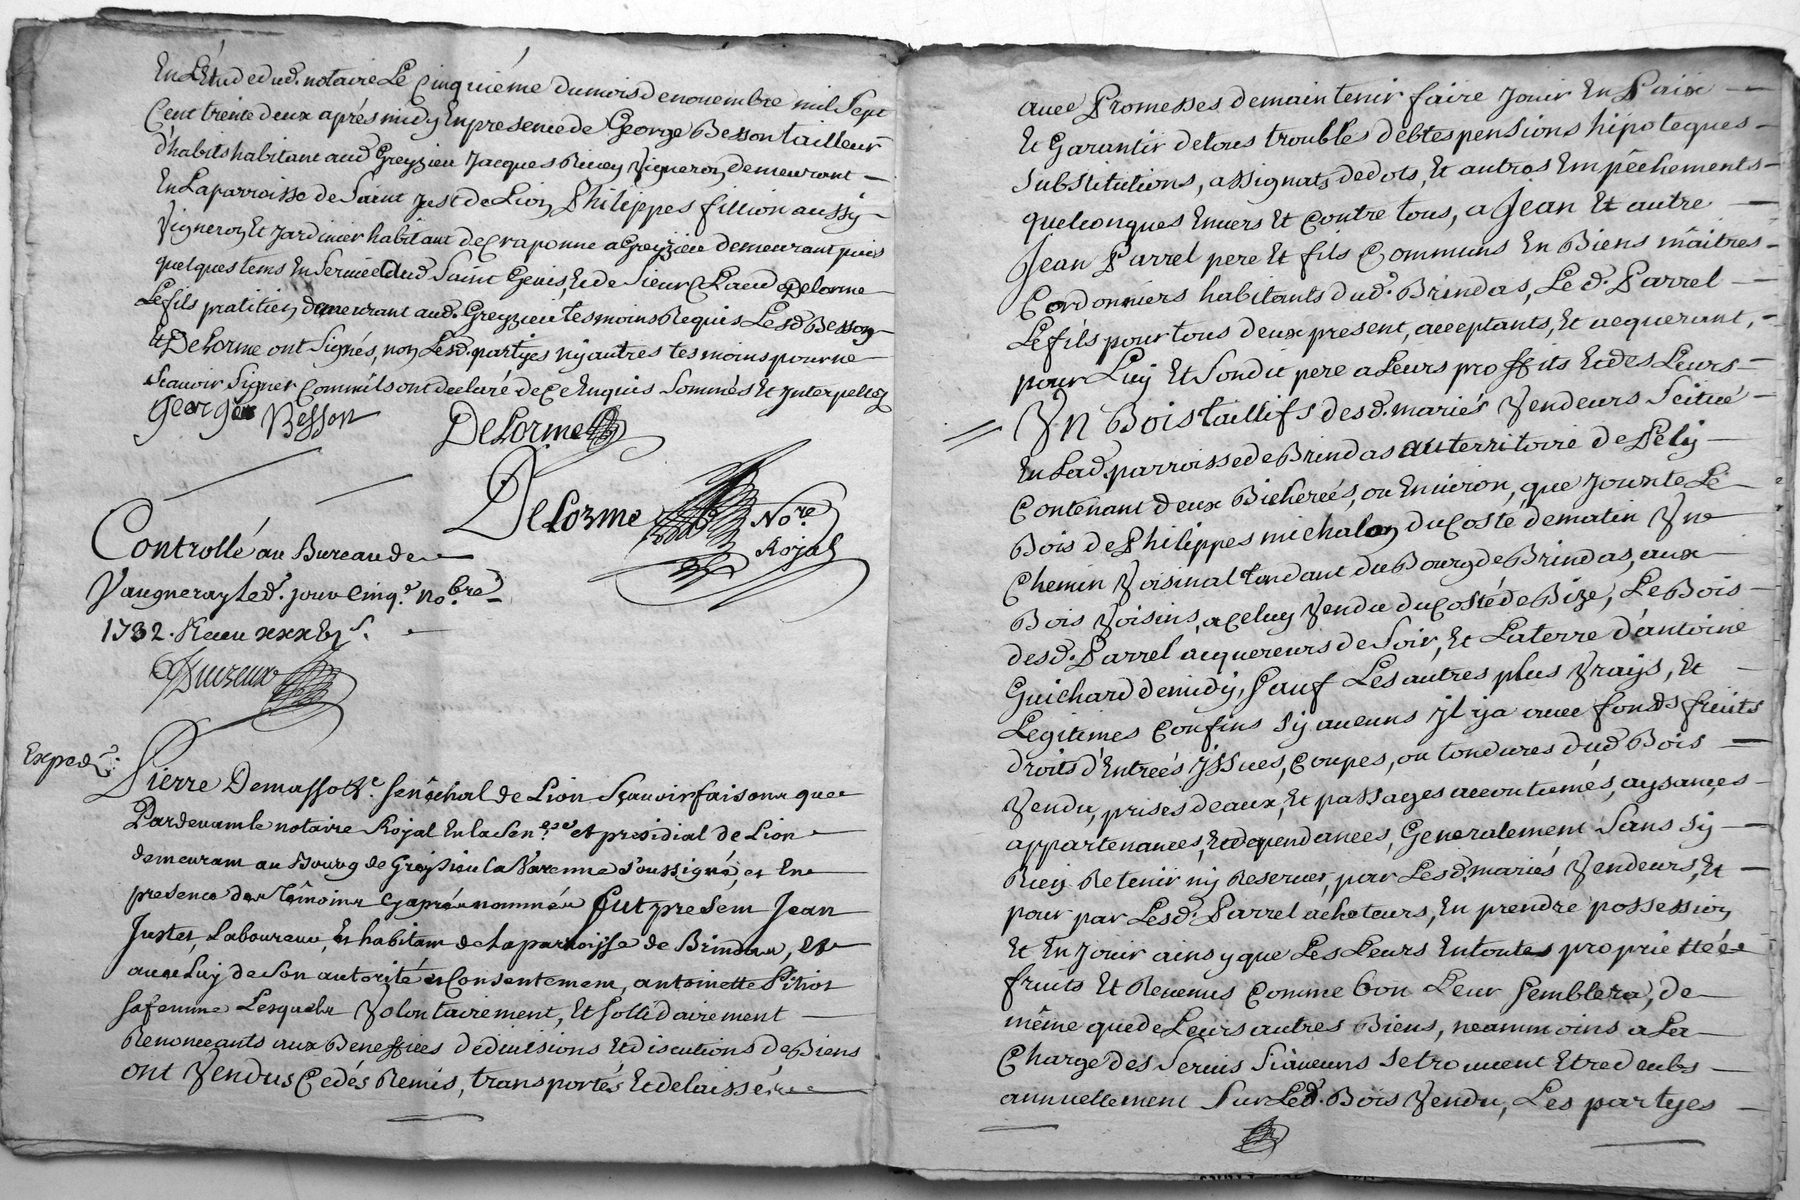 En L'Etude dud. notaire Le Cinquiéme du mois de novembre mil Sept
Cent trente deux aprés midy En presence de George Besson tailleur
d'habits habitant aud Greyzieu Jacques Vigneron demeurant
En La parroisse de Saint Just de Lion Philippes fillion aussy
Vigneron Et Jardinier habitant de Craponne a Greyzieu demeurant puis
quelques tems En Service dud. Saint Genis, Et de Sieur Claude Delorme
Le fils pratitien demeurant aud. Greyzieu tesmoins Requis Lesd. Besson
Et Delorme ont Signés, non Lesd. partyes ny autres tesmoins pour ne
Scavoir Signer Comm'ils ont declaré de Ce Enquis Sommés Et Interpellez
George Besson
Delorme
Delorme Nore
Rojal
Controllé au Bureau de
Vaugneray Led. jour Cinq.e No.bre
1732. Recu xxx
Exped.
Pierre Demasso Sénéchal de Lion Sçavoir faisons que
Pardevant le notaire Rojal En la Sen.ée et presidial de Lion
demeurant au Bourg de Greysieu la Varenne Soussigné, et En
presence des témoins Cy aprés nommés fut present Jean
Justet, Laboureur, Et habitant de la parroisse de Brindas, Et
avec Luy de Son autorité et Consentement, antoinette
Sa femme Lesquels Volontairement, Et Sollidairement
Renonceants aux Beneffices de divisions Et discutions de Biens
ont Vendus Cedés Remis, transportés Et delaissés
avec Promesses de maintenir faire Jouir En Paix
Et Garantir de tous troubles debtes pensions hipoteques
Substitutions, assignats de dots, Et autres Empêchements
quelconques Envers Et Contre tous, a Jean Et autre
Jean Parrel pere Et fils Communs En Biens mâitres
Cordonniers habitants dud. Brindas, Le d. Parrel
Le fils pour tous deux present, acceptants, Et acquerant,
pour Luy Et Sondit pere a Leurs proffits Et des Leurs
Un Bois taillifs desd. mariés Vendeurs Scitué
En Lad. parroisse de Brindas au territoire de Pely
Contenant deux Bicherées, ou Environ, que Joincte Le
Bois de Philippes michalon du Costé de matin Une
Chemin Voisinal tendant du Bourg de Brindas, aux
Bois Voisins, a Celuy Vendu du Costé de Bize, Le Bois
desd. Parrel acquereurs de Soir, Et La terre d'antoine
Guichard de midy, Sauf Les autres plus Vrays, Et
Legitimes Confins Sy aucuns Il y a avec fonds fruits
droits d'Entrées Issues, Coupes, ou tondures dud. Bois
Vendu, prises deaux, Et passages accoutumés, aysances
appartenances, Et dependances, Generalement Sans Sy
Rien Retenir ny Reserver, par Lesd. mariés Vendeurs, Et
pour par Lesd. Parrel acheteurs, En prendre possession
Et En Jouir ainsy que Les Leurs En toutes proprietteé
fruits Et Revenus Comme bon Leur Semblera, de
même que de Leurs autres Biens, neammoins a La
Charge des Servis Si aucuns Se trouvent Etre deubs
annuellement Sur Led. Bois Vendu, Les partyes